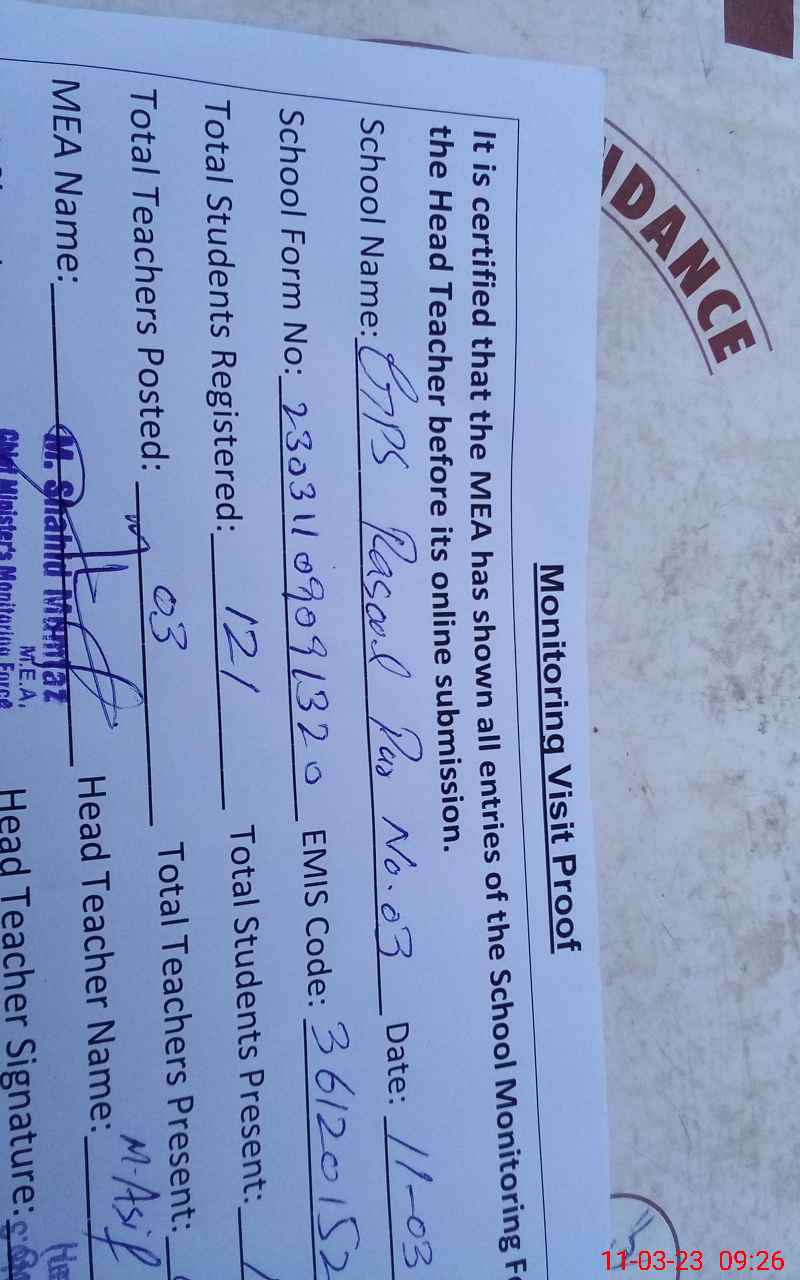 Monitoring Visit Proof
It is certified that the MEA has shown all entries of the School Monitoring
the Head Teacher before its online submission.
School Name: GPS Rasool Pur No.03 Date: 11-03
School Form No: 23031109091320 EMIS Code: 36120152
Total Students Registered: 121 Total Students Present:
Total Teachers Posted: 03 Total Teachers Present:
MEA Name: M. Shahid Mumtaz Head Teacher Name: M-Asif
M.E.A.
Chief Minister's Monitoring Force
Head Teacher Signature:
DANCE
11-03-23 09:26